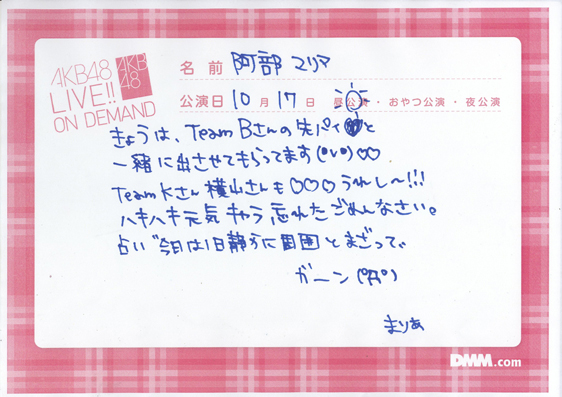 AKB48
LIVE!!
ON DEMAND
AKB
48
名前 阿部 マリア
公演日 10月 17日 昼公演・おやつ公演・夜公演
きょうは、Team Bさんの先パイ♥と
一緒に出させてもらってます(°v°)♡♡
Team Kさん 横山さんも♡♡♡うれし〜!!!
ハキハキ元気キャラ忘れたごめんなさい。
占い゛今日は1日静かに周囲とまざって、
ガーン(°Д°)
まりあ
DMM.com